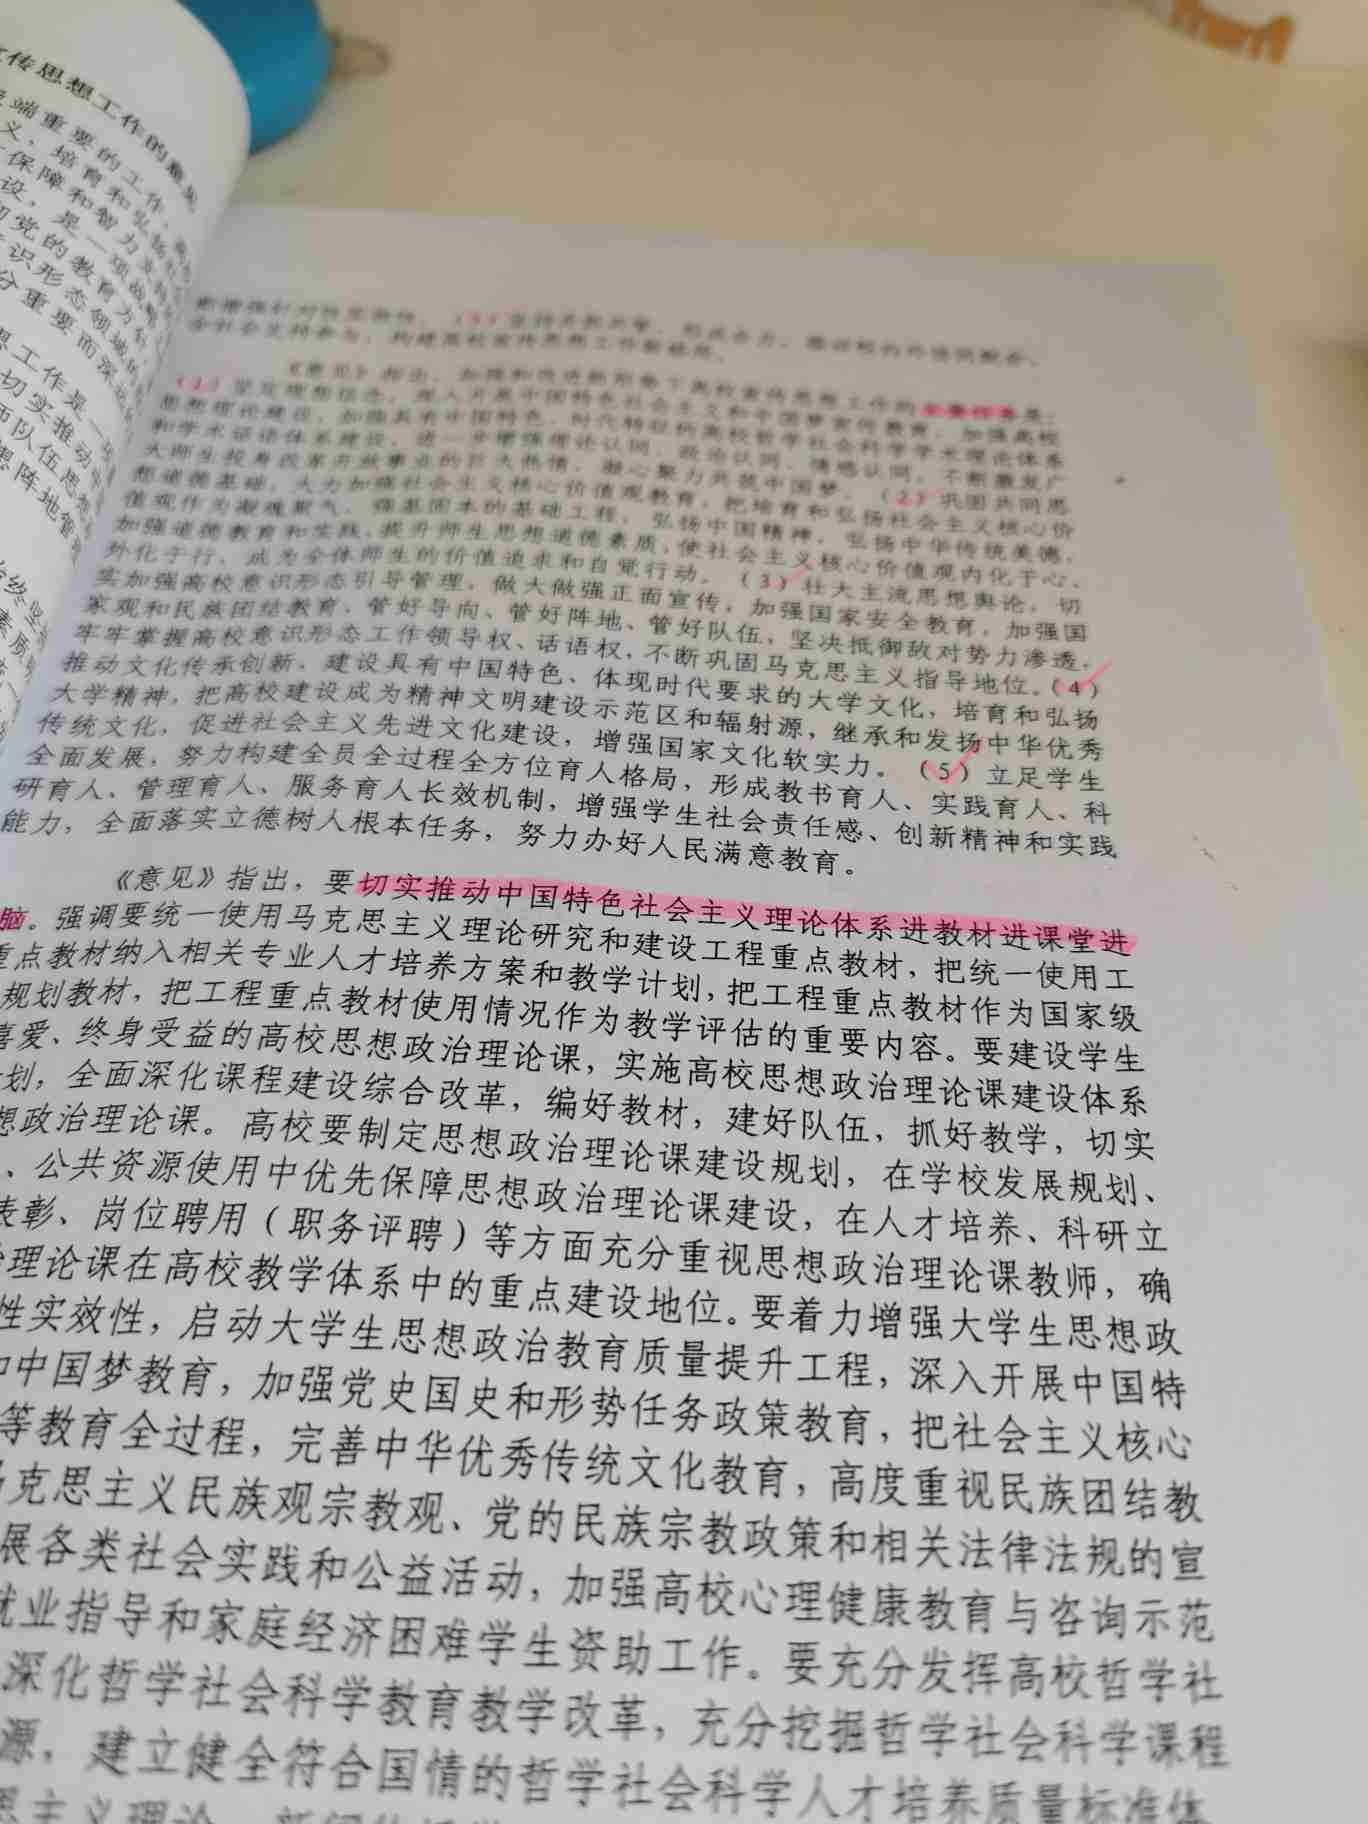 传思想工作的意见
端重要的工作
义、培育和弘扬
保障和智力支持
设，是一项战略
党的教育方针
识形态领域
分重要而深远
思工作是一
切实推动
队伍思想
思阵地管
断增强针对性实效性。（5）坚持齐抓共管、形成合力，推动校内外协同配合、
全社会支持参与，构建高校宣传思想工作新格局。
《意见》指出，加强和改进新形势下高校宣传思想工作的主要任务是：
（1）坚定理想信念，深入开展中国特色社会主义和中国梦宣传教育，加强高校
思想理论建设，加强具有中国特色、时代特征的高校哲学社会科学学术理论体系
和学术话语体系建设，进一步增强理论认同、政治认同、情感认同，不断激发广
大师生投身改革开放事业的巨大热情，凝心聚力共筑中国梦。（2）巩固共同思
想道德基础，大力加强社会主义核心价值观教育，把培育和弘扬社会主义核心价
值观作为凝魂聚气、强基固本的基础工程，弘扬中国精神，弘扬中华传统美德，
加强道德教育和实践，提升师生思想道德素质，使社会主义核心价值观内化于心、
外化于行，成为全体师生的价值追求和自觉行动。（3）壮大主流思想舆论，切
实加强高校意识形态引导管理，做大做强正面宣传，加强国家安全教育，加强国
家观和民族团结教育，管好导向、管好阵地、管好队伍，坚决抵御敌对势力渗透，
牢牢掌握高校意识形态工作领导权、话语权，不断巩固马克思主义指导地位。（4）
推动文化传承创新，建设具有中国特色、体现时代要求的大学文化，培育和弘扬
大学精神，把高校建设成为精神文明建设示范区和辐射源，继承和发扬中华优秀
传统文化，促进社会主义先进文化建设，增强国家文化软实力。（5）立足学生
全面发展，努力构建全员全过程全方位育人格局，形成教书育人、实践育人、科
研育人、管理育人、服务育人长效机制，增强学生社会责任感、创新精神和实践
能力，全面落实立德树人根本任务，努力办好人民满意教育。
《意见》指出，要切实推动中国特色社会主义理论体系进教材进课堂进
脑。强调要统一使用马克思主义理论研究和建设工程重点教材，把统一使用工
重点教材纳入相关专业人才培养方案和教学计划，把工程重点教材作为国家级
规划教材，把工程重点教材使用情况作为教学评估的重要内容。要建设学生
喜爱、终身受益的高校思想政治理论课，实施高校思想政治理论课建设体系
划，全面深化课程建设综合改革，编好教材，建好队伍，抓好教学，切实
想政治理论课。高校要制定思想政治理论课建设规划，在学校发展规划、
、公共资源使用中优先保障思想政治理论课建设，在人才培养、科研立
表彰、岗位聘用（职务评聘）等方面充分重视思想政治理论课教师，确
理论课在高校教学体系中的重点建设地位。要着力增强大学生思想政
性实效性，启动大学生思想政治教育质量提升工程，深入开展中国特
中国梦教育，加强党史国史和形势任务政策教育，把社会主义核心
等教育全过程，完善中华优秀传统文化教育，高度重视民族团结教
克思主义民族观宗教观、党的民族宗教政策和相关法律法规的宣
展各类社会实践和公益活动，加强高校心理健康教育与咨询示范
就业指导和家庭经济困难学生资助工作。要充分发挥高校哲学社
深化哲学社会科学教育教学改革，充分挖掘哲学社会科学课程
源，建立健全符合国情的哲学社会科学人才培养质量标准体
思主义理论、新闻